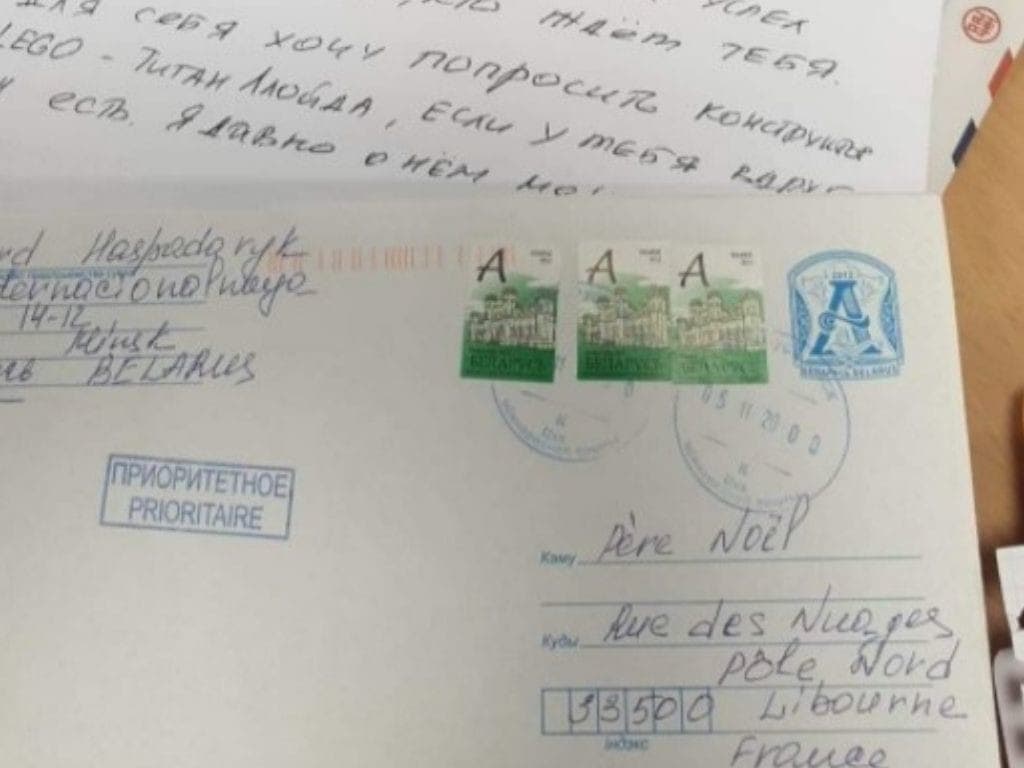 УСПЕХ
ЖДЁТ ТЕБЯ.
ДЛЯ СЕБЯ ХОЧУ ПОПРОСИТЬ КОНСТРУКТОР
LEGO - ТИТАН ЛЛОЙДА, ЕСЛИ У ТЕБЯ ВДРУГ
ЕСТЬ. Я ДАВНО О НЁМ
Haspadaryk
14-12
Minsk
BELARUS
A
A
A
BELARUS
2012
A
БЕЛАРУСЬ BELARUS
05 11 20
ПРИОРИТЕТНОЕ
PRIORITAIRE
Каму Père Noël
Куды Rue des Nuages
Pôle Nord
33500 Libourne
Індэкс
France